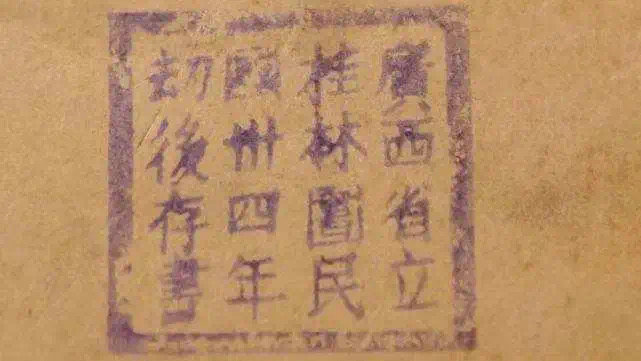 廣西省立
桂林圕民
國卅四年
劫後存書